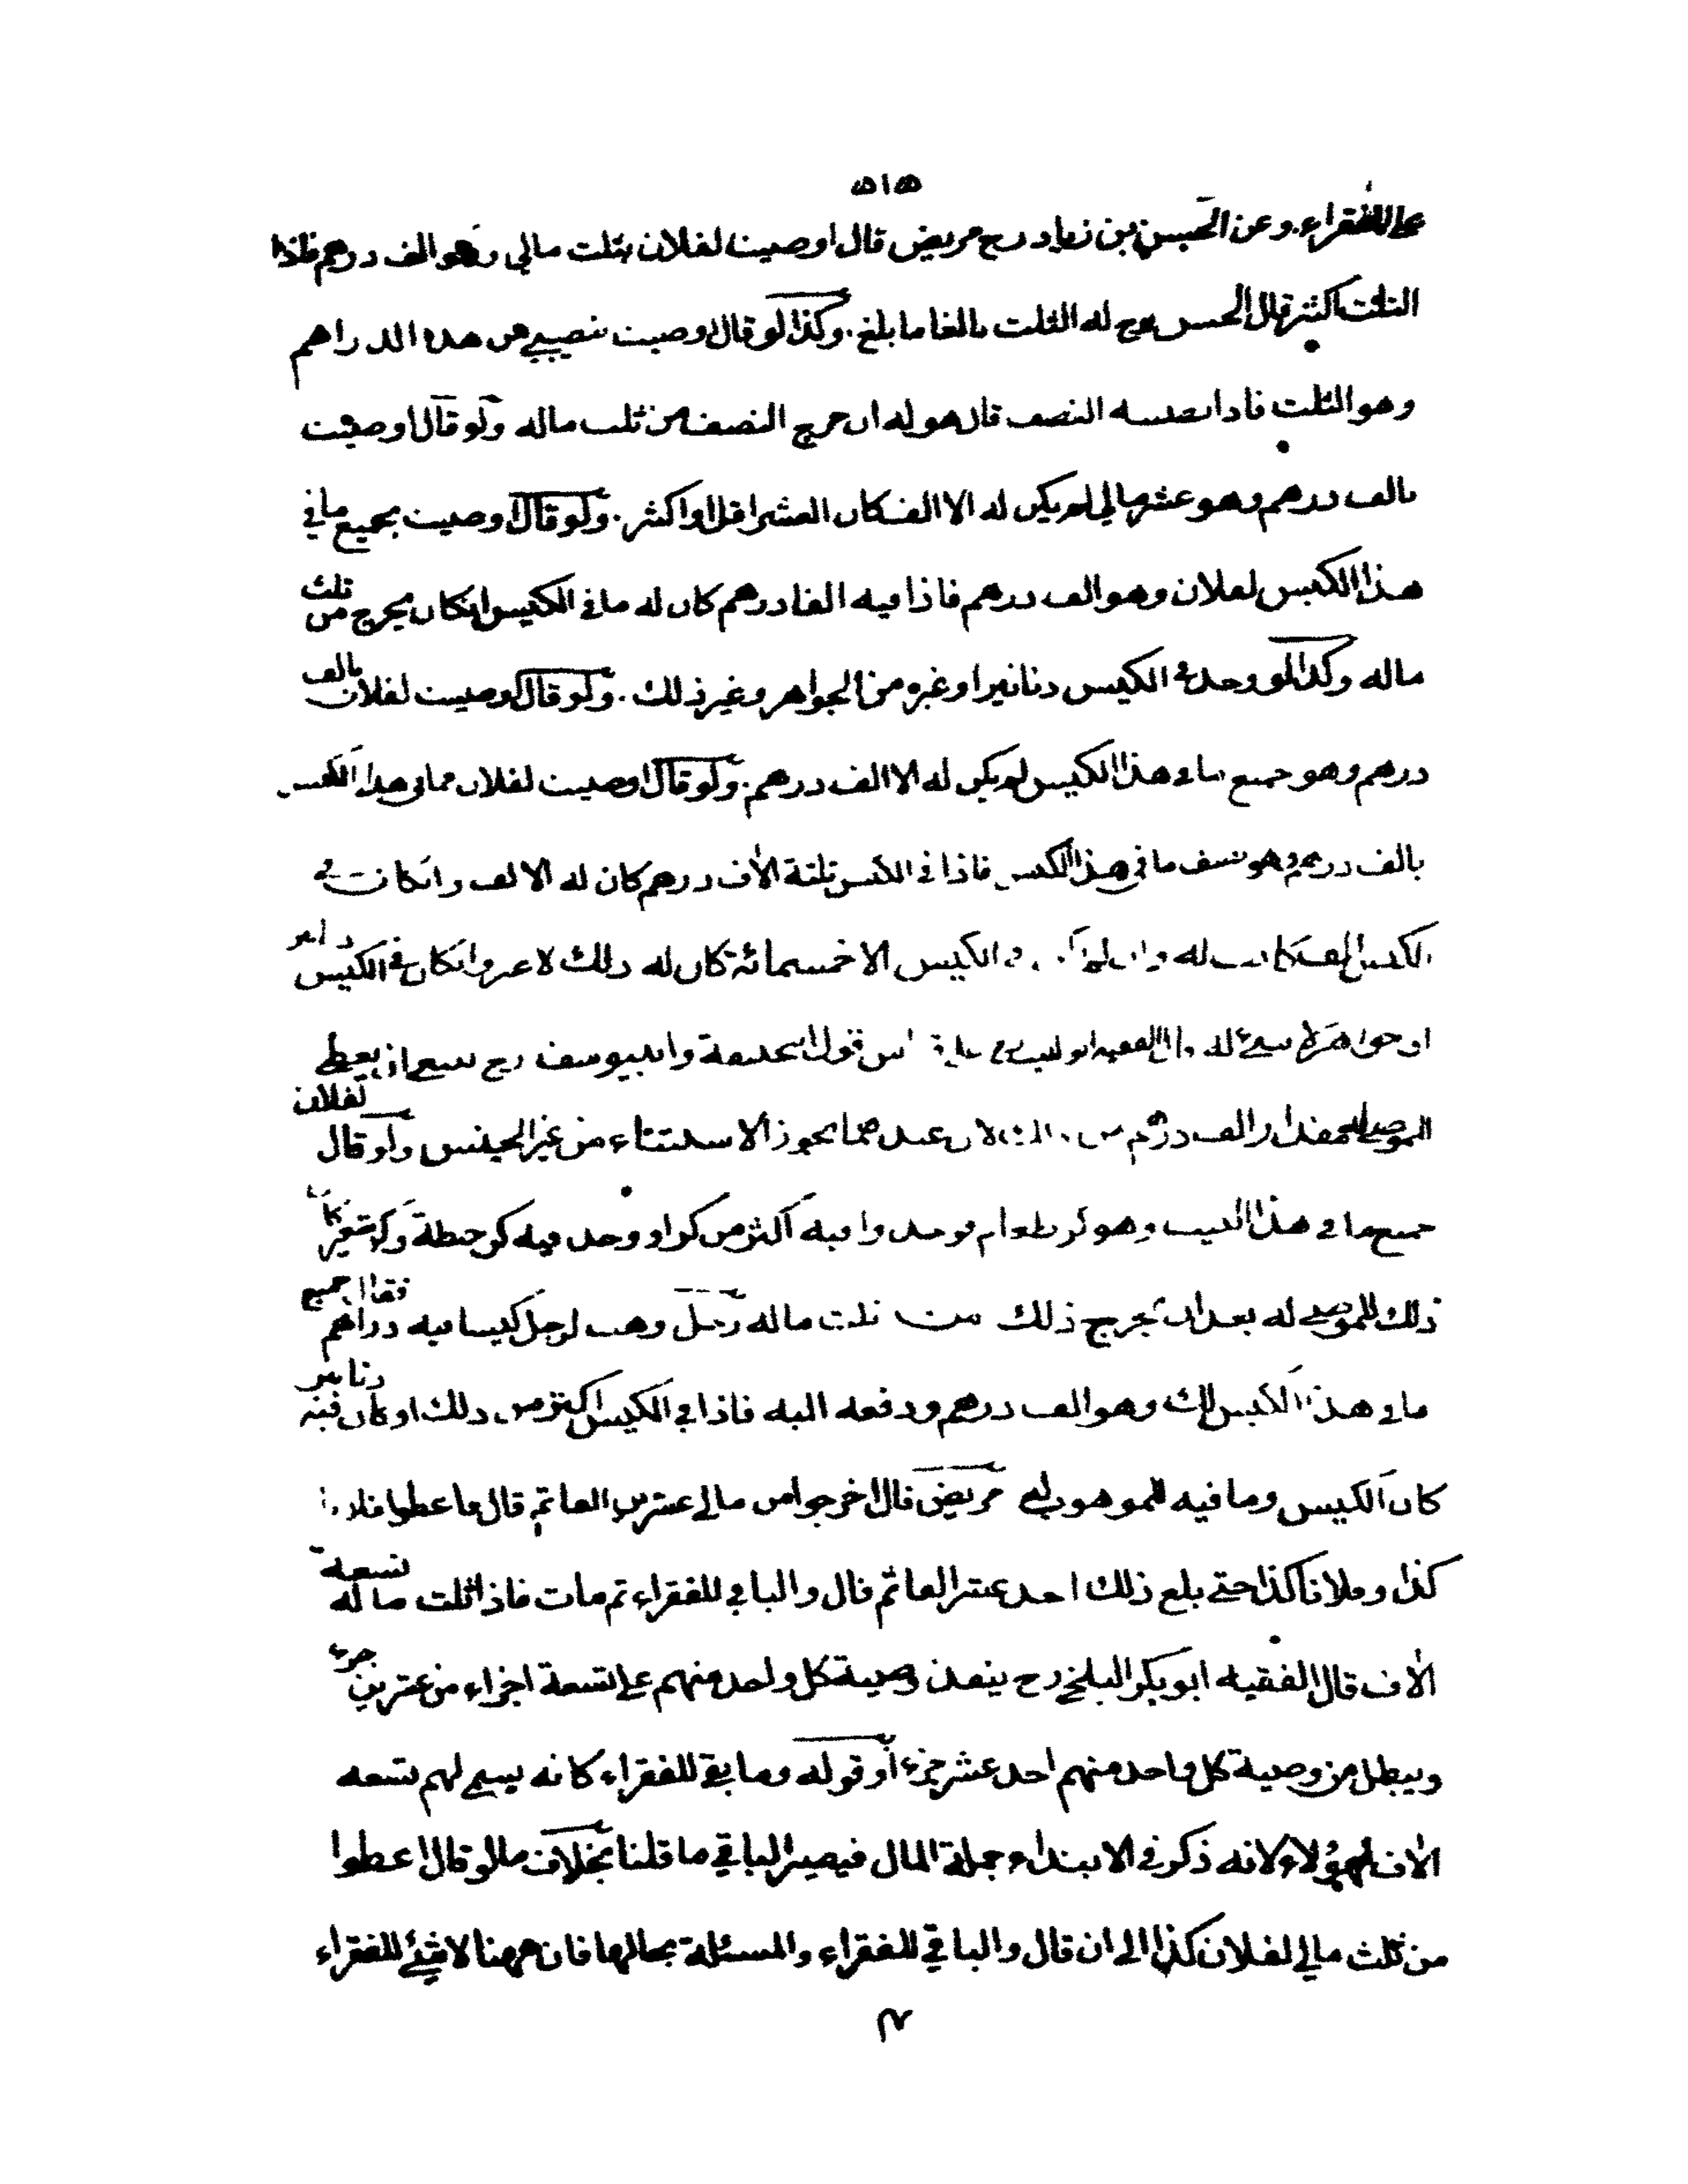 ٥١٥
على الفقراء. وعن الحسن بن زياد رح مريض قال اوصيت لفلان بثلث مالي وهو الف درهم فاذا
الثلث اكثر قال الحسن رح له الثلث بالغا ما بلغ. وكذا لو قال اوصيت بنصيبي من هذه الدراهم
وهو الثلث فاذا نصيبه النصف قال هو له ان خرج النصف من ثلث ماله ولو قال اوصيت
بالف درهم وهو عشر مالي لم يكن له الا الف كان العشر اقل او اكثر. ولو قال اوصيت بجميع ما في
هذا الكيس لفلان وهو الف درهم فاذا فيه الفا درهم كان له ما في الكيس ان كان يخرج من ثلث
ماله وكذا لو وجد في الكيس دنانير او غيره من الجواهر وغير ذلك. ولو قال اوصيت لفلان بالف
درهم وهو جميع ما في هذا الكيس لم يكن له الا الف درهم. ولو قال اوصيت لفلان مما في هذا الكيس
بالف درهم وهو نصف ما في هذا الكيس فاذا في الكيس ثلثة الاف درهم كان له الالف وان كانت في
الكيس الف كانت له وان لم يكن في الكيس الا خمسمائة كان له ذلك لا غير وان كان في الكيس دنانير
او جواهر لا شيء له قال الفقيه ابو الليث رح على قياس قول ابي حنيفة وابي يوسف رح ينبغي ان يعطى
الموصى له مقدار الف درهم من ذلك لان عندهما يجوز الاستثناء من غير الجنس ولو قال لفلان
جميع ما في هذا البيت وهو كر طعام فوجدوا فيه اكثر من كر او وجد فيه كر حنطة وكر شعير كان
ذلك للموصى له بعد ان يخرج ذلك من ثلث ماله رجل وهب لرجل كيسا فيه دراهم فقال جميع
ما في هذا الكيس لك وهو الف درهم ودفعه اليه فاذا في الكيس اكثر من ذلك او كان فيه دنانير
كان الكيس وما فيه للموهوب له مريض قال اخرجوا من مالي عشرين الفا ثم قال فاعطوا فلانا
كذا وفلانا كذا حتى بلغ ذلك احد عشر الفا ثم قال والباقي للفقراء ثم مات فاذا ثلث ماله تسعة
الاف قال الفقيه ابو بكر البلخي رح ينفذ وصية كل واحد منهم على تسعة اجزاء من عشرين جزء
ويبطل من وصية كل واحد منهم احد عشر جزء او قوله وما بقي للفقراء كانه يسمي لهم تسعة
الاف لهؤلاء لانه ذكر في الابتداء جملة المال فيصير الباقي ما قلنا بخلاف ما لو قال اعطوا
من ثلث مالي لفلان كذا الى ان قال والباقي للفقراء والمسئلة بحالها فان ههنا لا شيء للفقراء